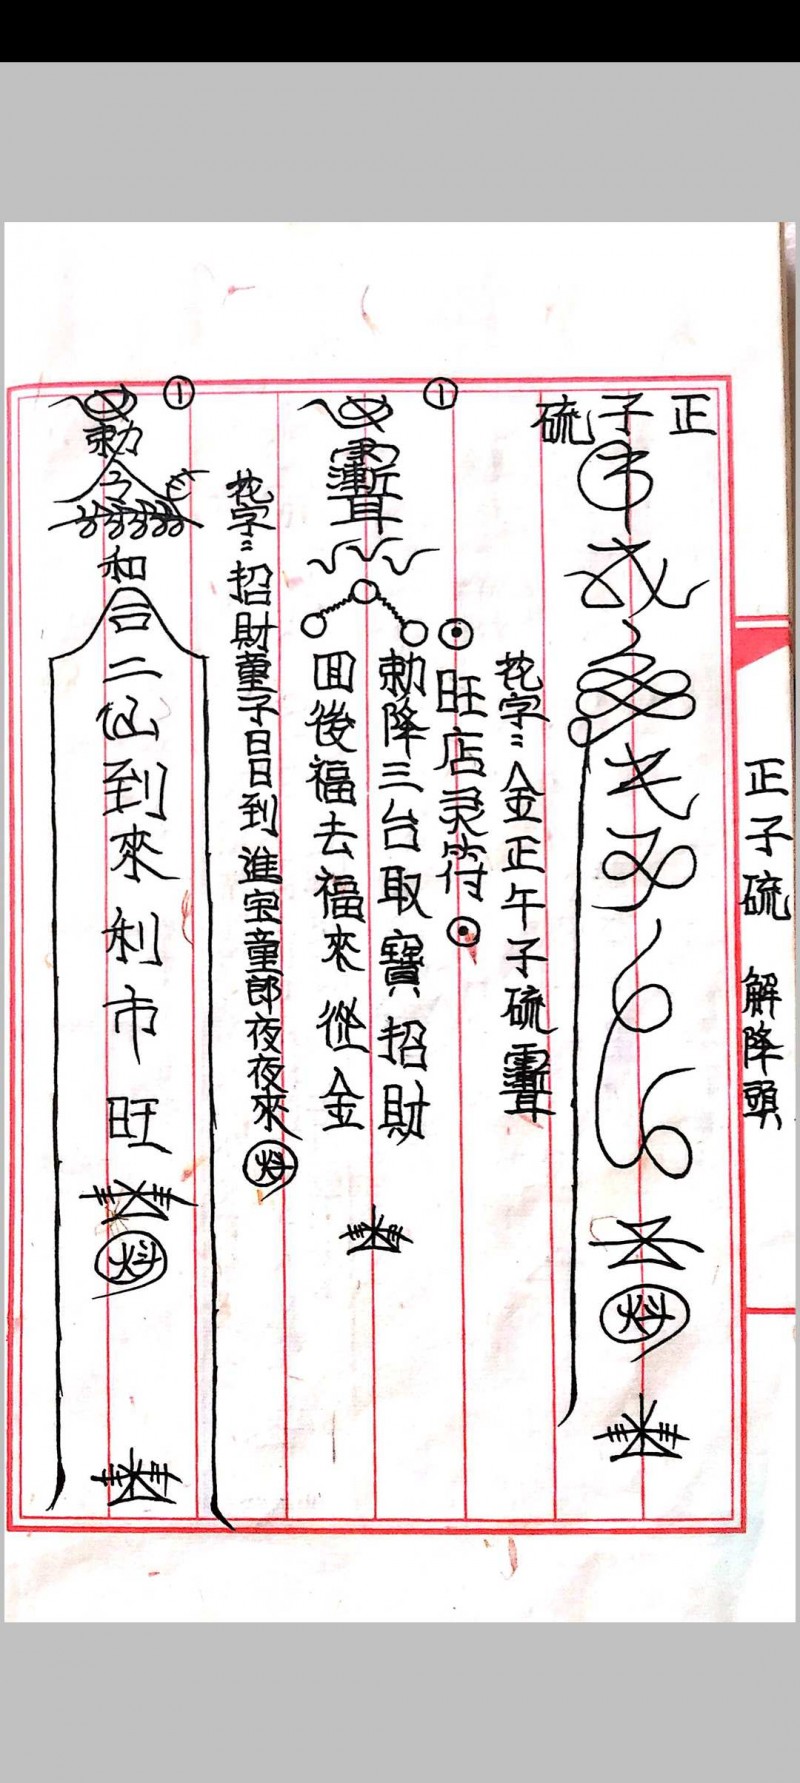 正子硫 解降頭
正子硫
花字：金正午子硫
①
旺店灵符
勅降三台取寶招財
回後福去福來從金
①
花字：招財童子日日到進宝童郎夜夜來
勅令
和合二仙到來利市旺